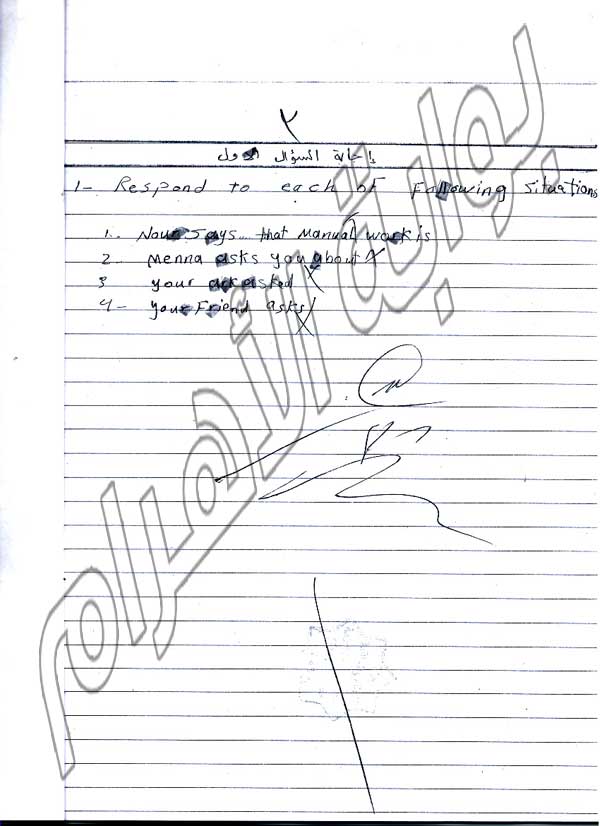 ٢
إجابة السؤال الأول
1- Respond to each of Following situations
1. Nour says that Manual work is
2 Menna asks you about
3 your are asked
4- your Friend asks
بوابة الأهرام